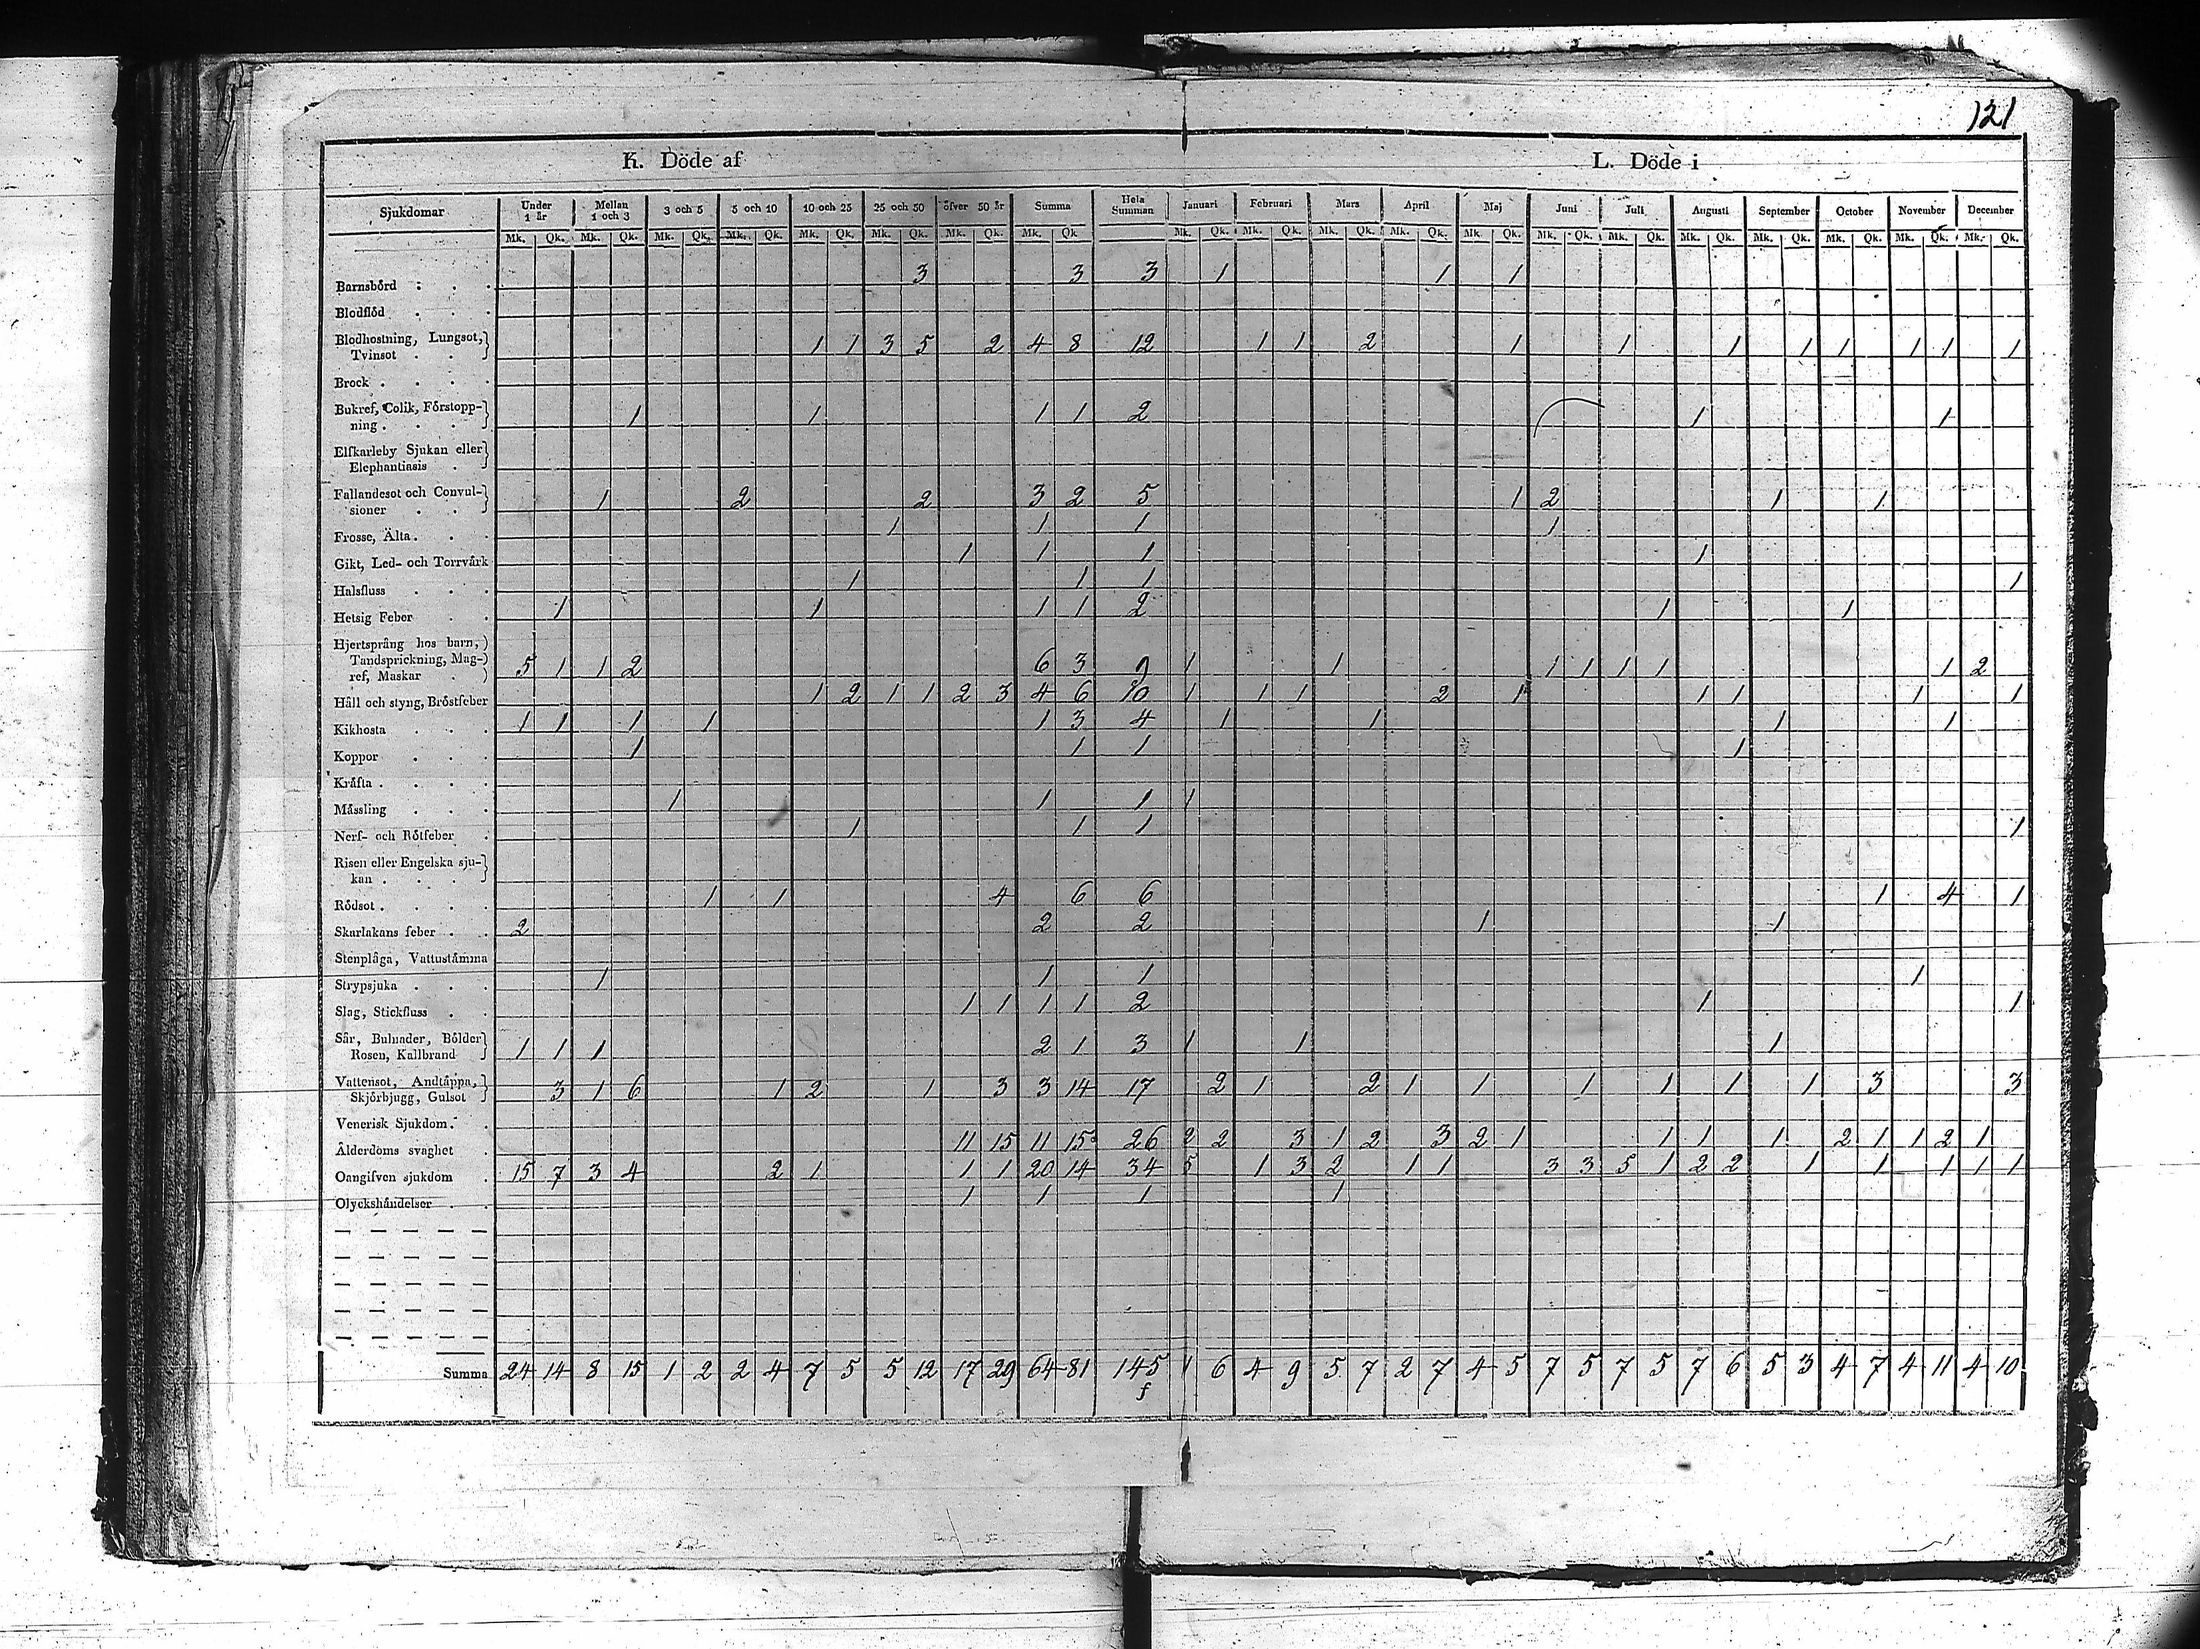 121
K. Döde af L. Döde i
Sjukdomar Under 1 år Mellan 1 och 3 3 och 5 5 och 10 10 och 25 25 och 50 öfver 50 år Summa Hela Summan Januari Februari Mars April Maj Juni Juli Augusti September October November December
Mk. Qk. Mk. Qk. Mk. Qk. Mk. Qk. Mk. Qk. Mk. Qk. Mk. Qk. Mk. Qk Mk. Qk. Mk. Qk. Mk. Qk. Mk. Qk. Mk. Qk. Mk. Qk. Mk. Qk. Mk. Qk. Mk. Qk. Mk. Qk. Mk. Qk. Mk. Qk.
Barnsbörd 3 3 3 1 1 1
Blodflöd
Blodhostning, Lungsot,
Tvinsot 1 1 3 5 2 4 8 12 1 1 2 1 1 1 1 1 1 1 1
Brock
Bukref, Colik, Förstopp-
ning 1 1 1 1 2 1 1
Elfkarleby Sjukan eller
Elephantiasis
Fallandesot och Convul-
sioner 1 2 2 3 2 5 1 2 1 1
Frosse, Älta 1 1 1 1
Gikt, Led- och Torrvärk 1 1 1 1
Halsfluss 1 1 1 1
Hetsig Feber 1 1 1 1 2 1 1
Hjertsprång hos barn,
Tandsprickning, Mag-
ref, Maskar 5 1 1 2 6 3 9 1 1 1 1 1 1 1 2
Håll och styng, Bröstfeber 1 2 1 1 2 3 4 6 10 1 1 1 2 1 1 1 1 1
Kikhosta 1 1 1 1 1 3 4 1 1 1 1
Koppor 1 1 1 1
Kräfta
Mässling 1 1 1 1
Nerf- och Rötfeber 1 1 1 1
Risen eller Engelska sju-
kan
Rödsot 1 1 4 6 6 1 4 1
Skarlakans feber 2 2 2 1 1
Stenplåga, Vattustämma
Strypsjuka 1 1 1 1
Slag, Stickfluss 1 1 1 1 2 1 1
Sår, Bulnader, Bölder
Rosen, Kallbrand 1 1 1 2 1 3 1 1 1
Vattensot, Andtäppa,
Skjörbjugg, Gulsot 3 1 6 1 2 1 3 3 14 17 2 1 2 1 1 1 1 1 1 3 3
Venerisk Sjukdom
Ålderdoms svaghet 11 15 11 15 26 2 2 3 1 2 3 2 1 1 1 1 2 1 1 2 1
Oangifven sjukdom 15 7 3 4 2 1 1 1 20 14 34 5 1 3 2 1 1 3 3 5 1 2 2 1 1 1 1 1
Olyckshändelser 1 1 1 1
Summa 24 14 8 15 1 2 2 4 7 5 5 12 17 29 64 81 145 1 6 4 9 5 7 2 7 4 5 7 5 7 5 7 6 5 3 4 7 4 11 4 10